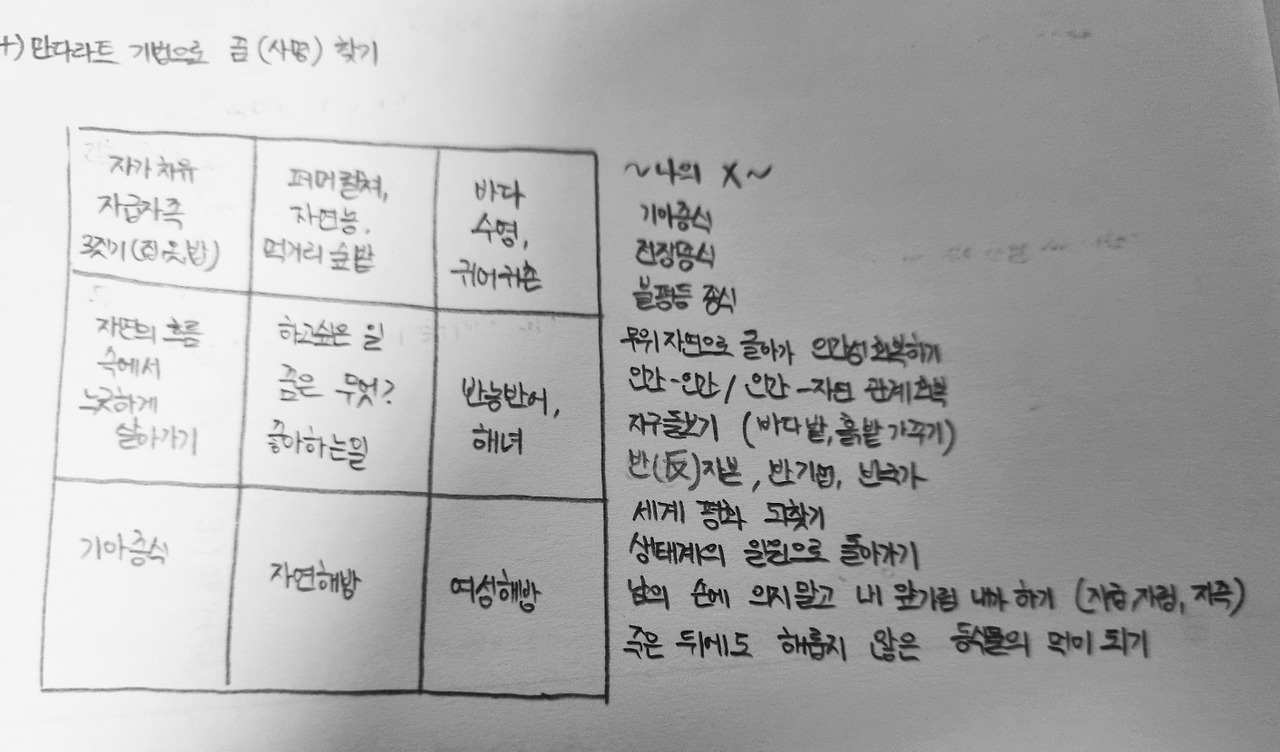 +) 만다라트 기법으로 꿈(사명) 찾기
자가치유
자급자족
3짓기(집옷밥)
퍼머컬쳐,
자연농,
먹거리숲밭
바다
수영,
귀어귀촌
자연의 흐름
속에서
느긋하게
살아가기
하고싶은 일
꿈은 무엇?
좋아하는일
반농반어,
해녀
기아종식
자연해방
여성해방
~나의 X~
기아종식
전장종식
불평등 종식
무위자연으로 돌아가 인간성회복하기
인간-인간 / 인간-자연 관계회복
지구돌보기 (바다밭, 흙밭 가꾸기)
반(反)자본, 반기업, 반국가
세계 평화 되찾기
생태계의 일원으로 돌아가기
남의 손에 의지말고 내 앞가림 내가 하기 (자급, 자립, 자족)
죽은 뒤에도 해롭지 않은 동식물의 먹이 되기